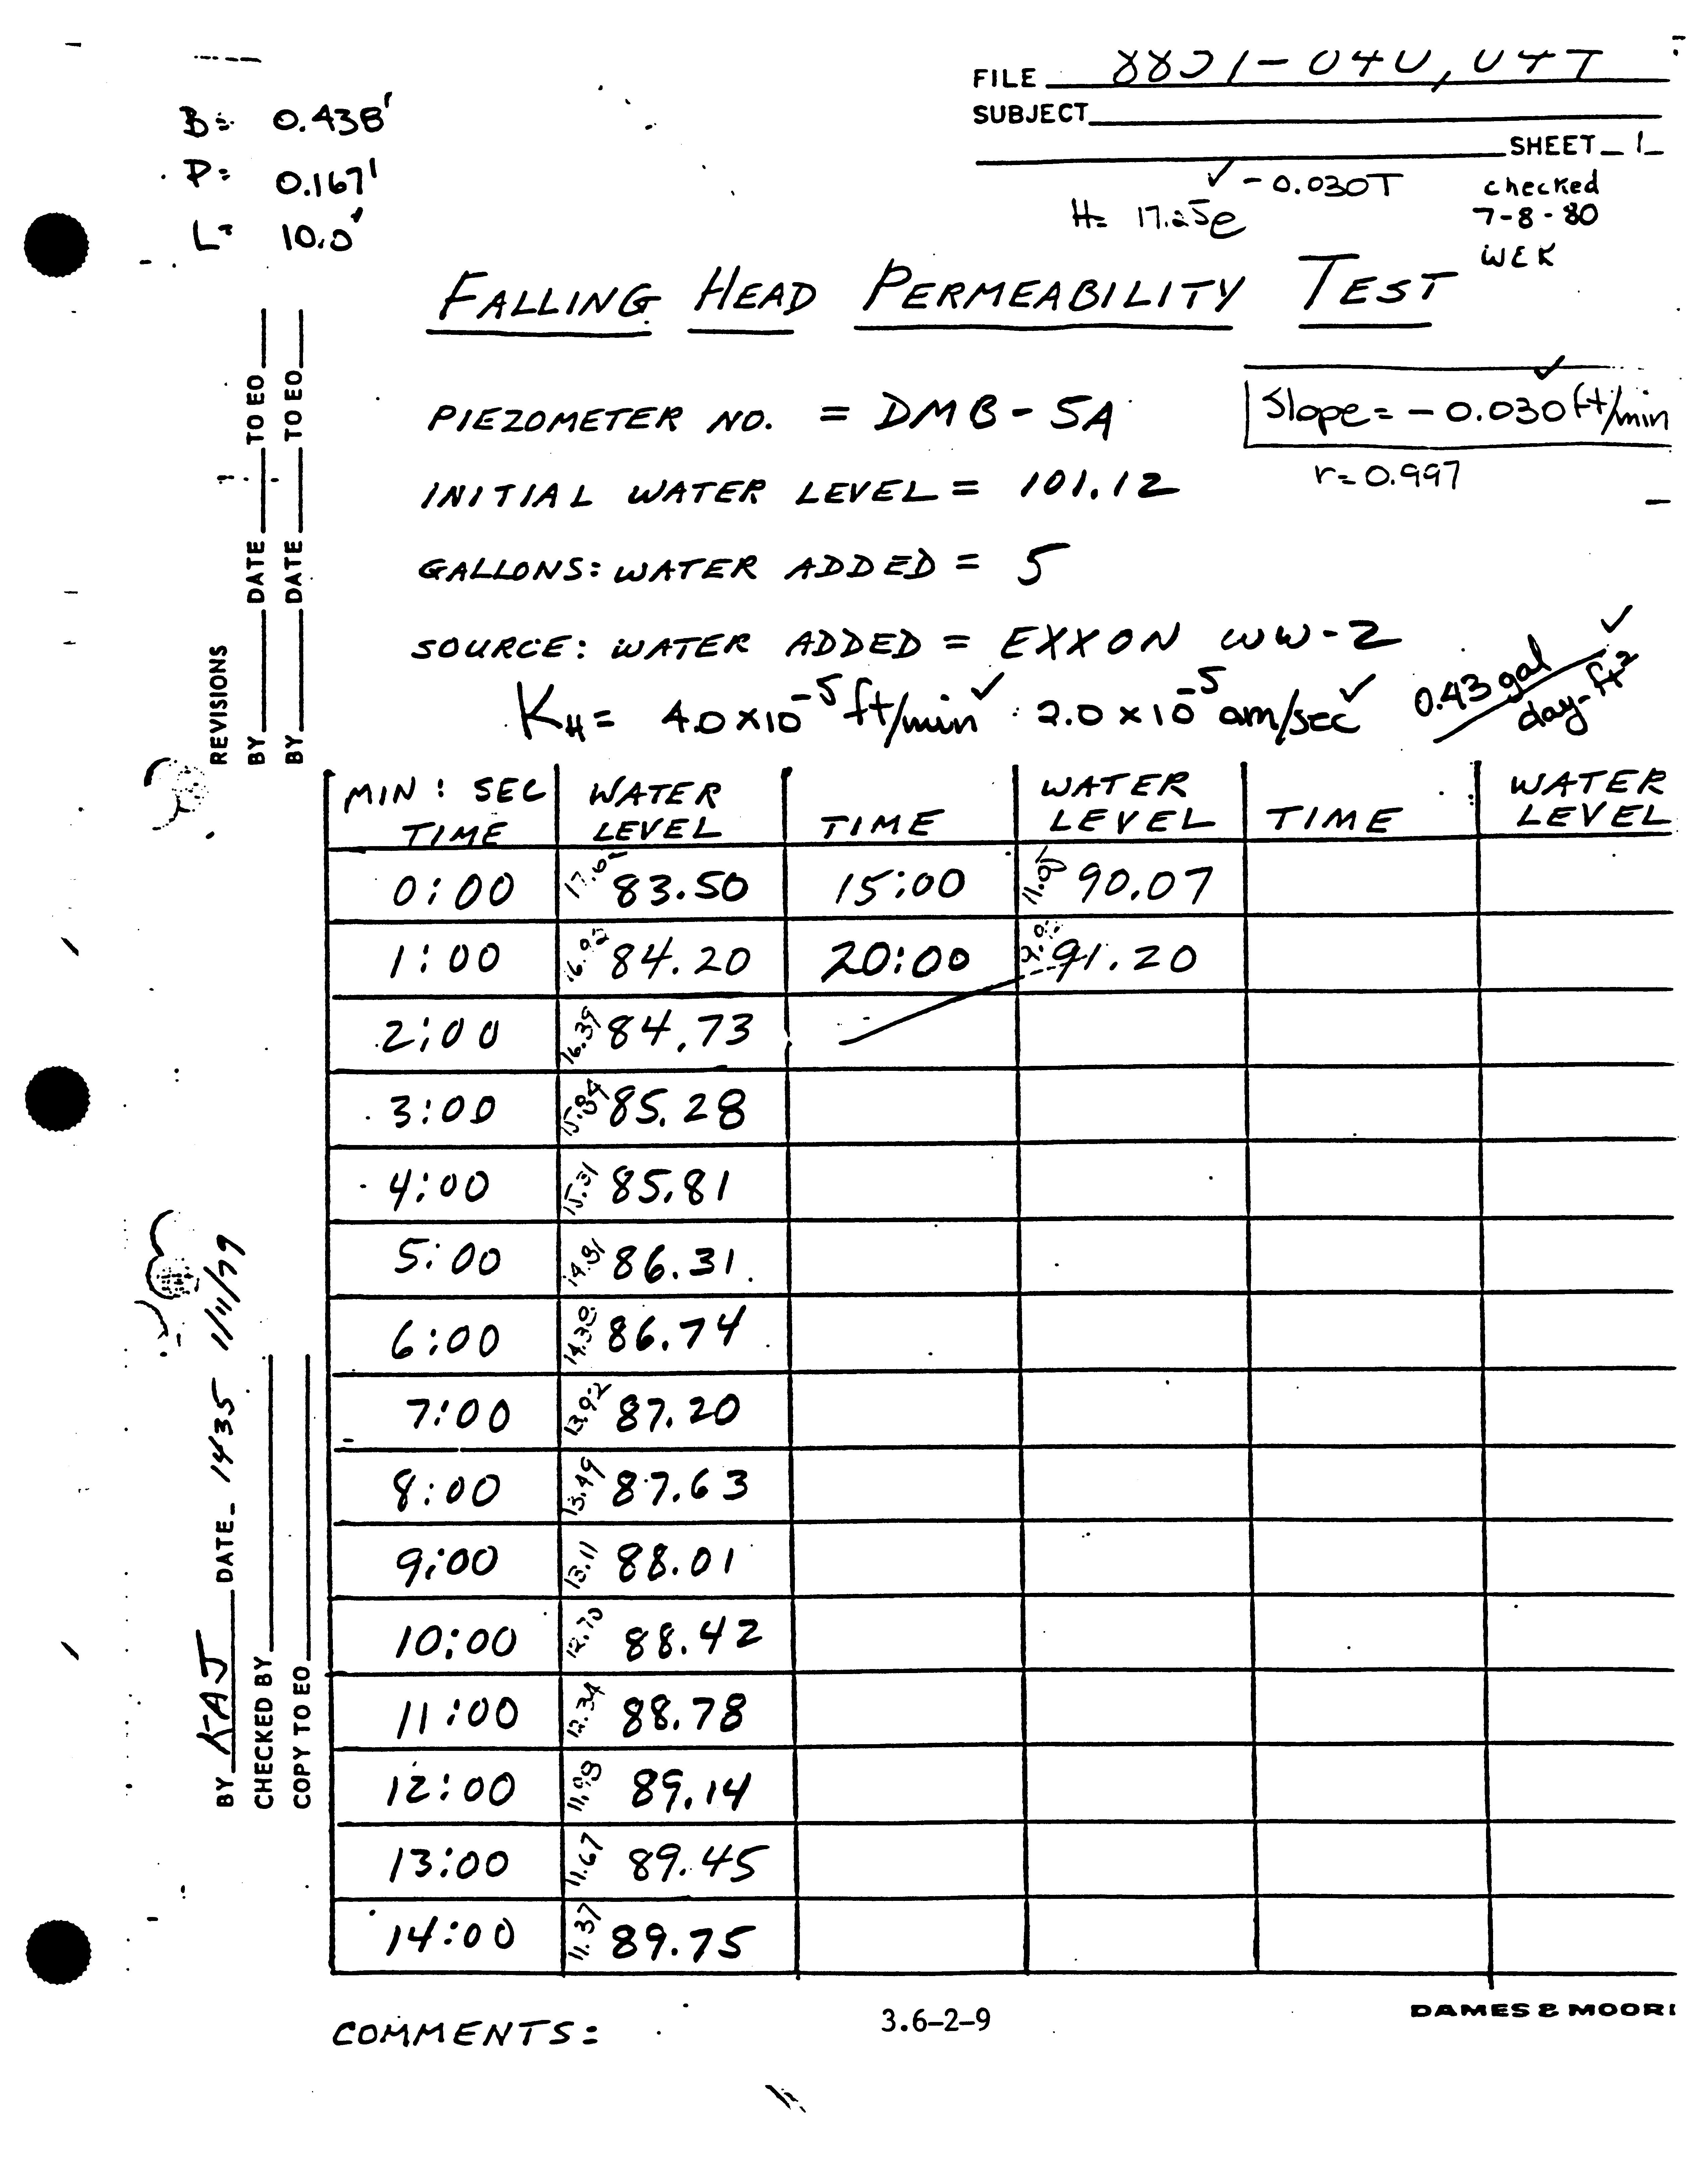 FILE
SUBJECT
SHEET 1
B= 0.438'
P= 0.167'
L= 10.0'
H= 17.25e -0.030T
checked
7-8-80
WEK
FALLING HEAD PERMEABILITY TEST
PIEZOMETER NO. = DMB-5A
Slope = -0.030 ft/min
r= 0.997
INITIAL WATER LEVEL = 101.12
GALLONS: WATER ADDED = 5
SOURCE: WATER ADDED = EXXON WW-2
KH= 4.0x10-5 ft/min 2.0x10-5 cm/sec 0.43 gal/day-ft2
MIN : SEC TIME WATER LEVEL TIME WATER LEVEL TIME WATER LEVEL
0:00 83.50 15:00 11.05 90.07
1:00 16.92 84.20 20:00 91.20
2:00 16.39 84.73
3:00 15.84 85.28
4:00 15.31 85.81
5:00 14.81 86.31
6:00 14.38 86.74
7:00 13.92 87.20
8:00 13.49 87.63
9:00 13.11 88.01
10:00 12.70 88.42
11:00 12.34 88.78
12:00 11.98 89.14
13:00 11.67 89.45
14:00 11.37 89.75
COMMENTS:
3.6-2-9
DAMES & MOOR
REVISIONS
BY DATE TO EO
BY DATE TO EO
BY KAJ DATE 1435 1/11/79
CHECKED BY
COPY TO EO